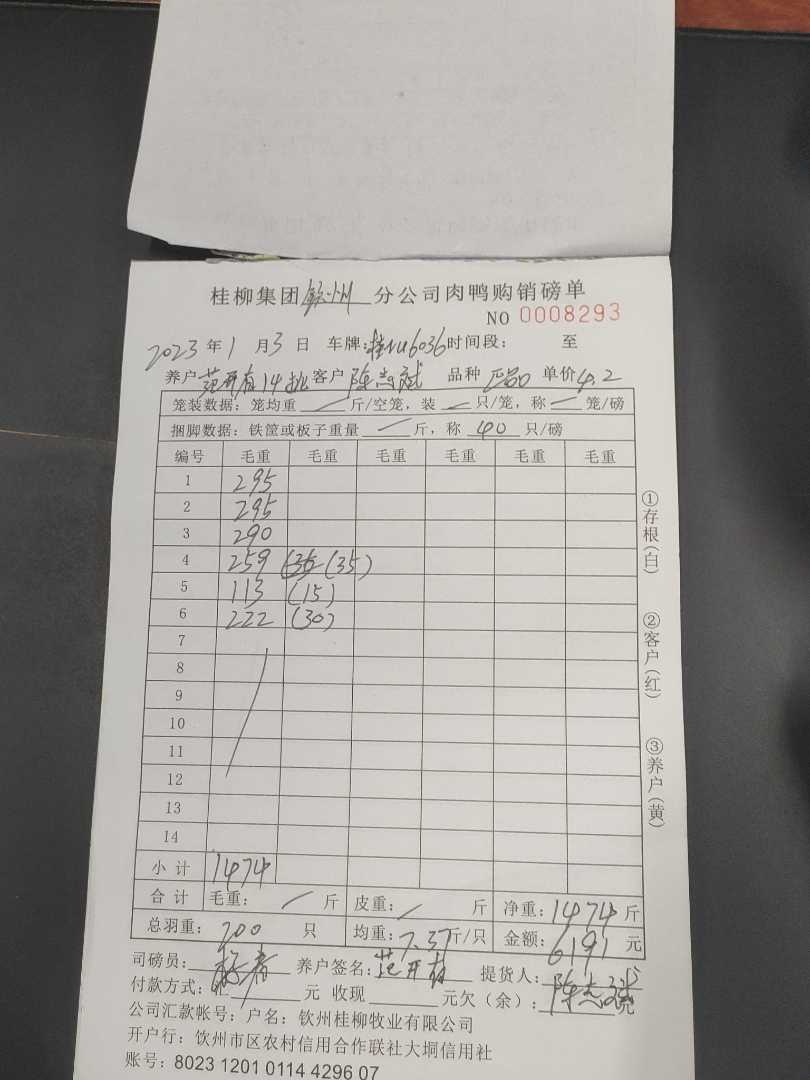 桂柳集团钦州分公司肉鸭购销磅单
NO 0008293
2023年1月3日 车牌:桂NU6036时间段: 至
养户范开有14批客户陈志斌 品种 单价4.2
笼装数据: 笼均重 — 斤/空笼, 装 — 只/笼, 称 — 笼/磅
捆脚数据: 铁筐或板子重量 — 斤, 称 40 只/磅
编号 毛重 毛重 毛重 毛重 毛重 毛重
1 295
2 295
3 290
4 259 (35)
5 113 (15)
6 222 (30)
7
8
9
10
11
12
13
14
小计 1474
合计 毛重: 斤 皮重: 斤 净重: 1474斤
总羽重: 200 只 均重: 7.37斤/只 金额: 6191元
司磅员: 养户签名: 范开有 提货人: 陈志斌
付款方式: 汇 元 收现 元欠(余):
公司汇款帐号: 户名: 钦州桂柳牧业有限公司
开户行: 钦州市区农村信用合作联社大垌信用社
账号: 8023 1201 0114 4296 07
①存根(白)
②客户(红)
③养户(黄)